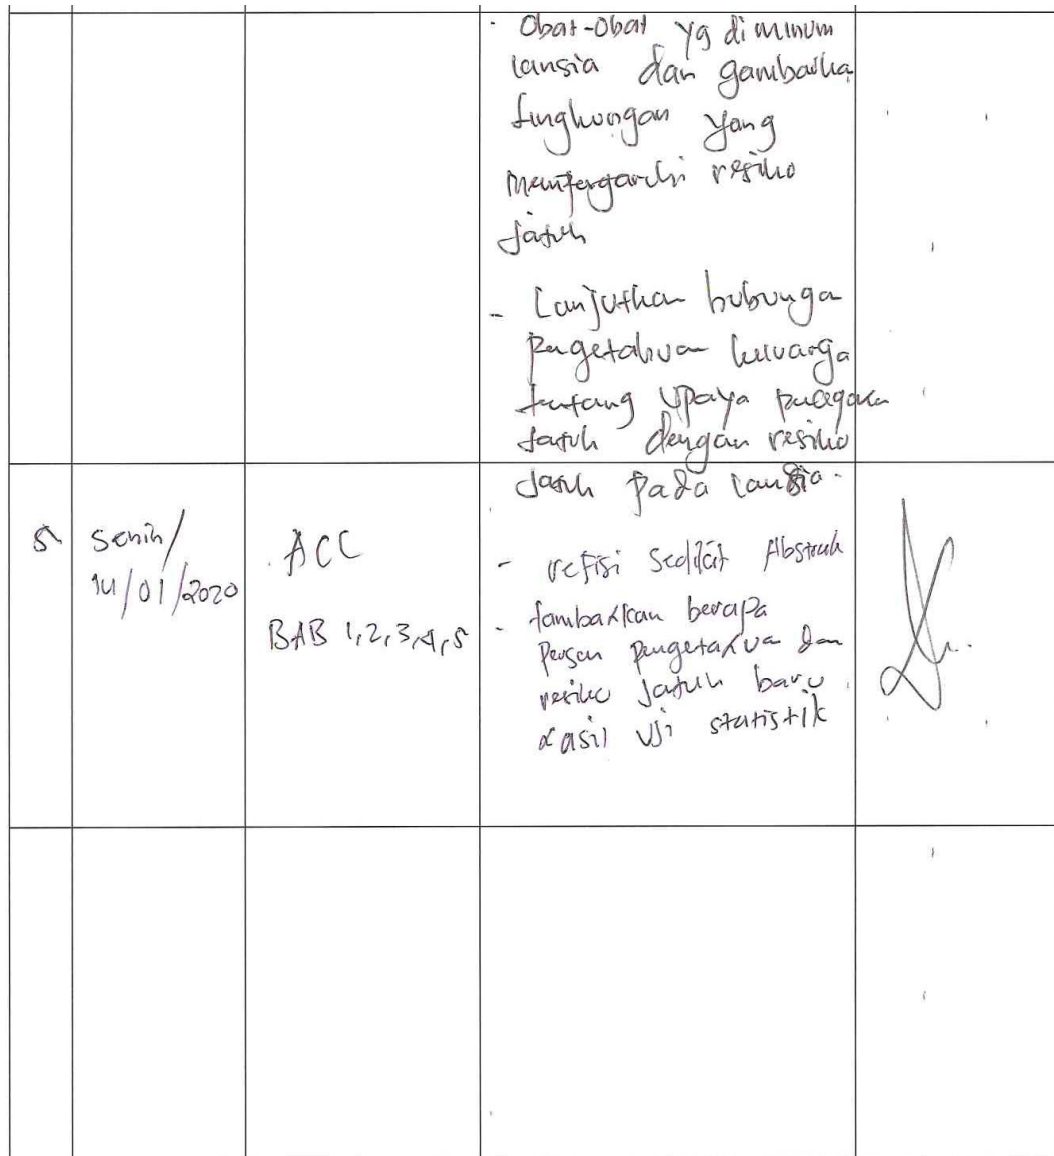 - Obat-Obat yg diminum
lansia dan gambarka
lingkungan yang
mempengaruhi resiko
jatuh
- Lanjutkan hubunga
pengetahua keluarga
tentang upaya pencegaha
jatuh dengan resiko
jatuh pada lansia.
5
Senin/
14/01/2020
ACC
BAB 1,2,3,4,5
- refisi sedikit Abstrak
- tambahkan berapa
persen pengetahua dan
resiko jatuh baru
hasil uji statistik